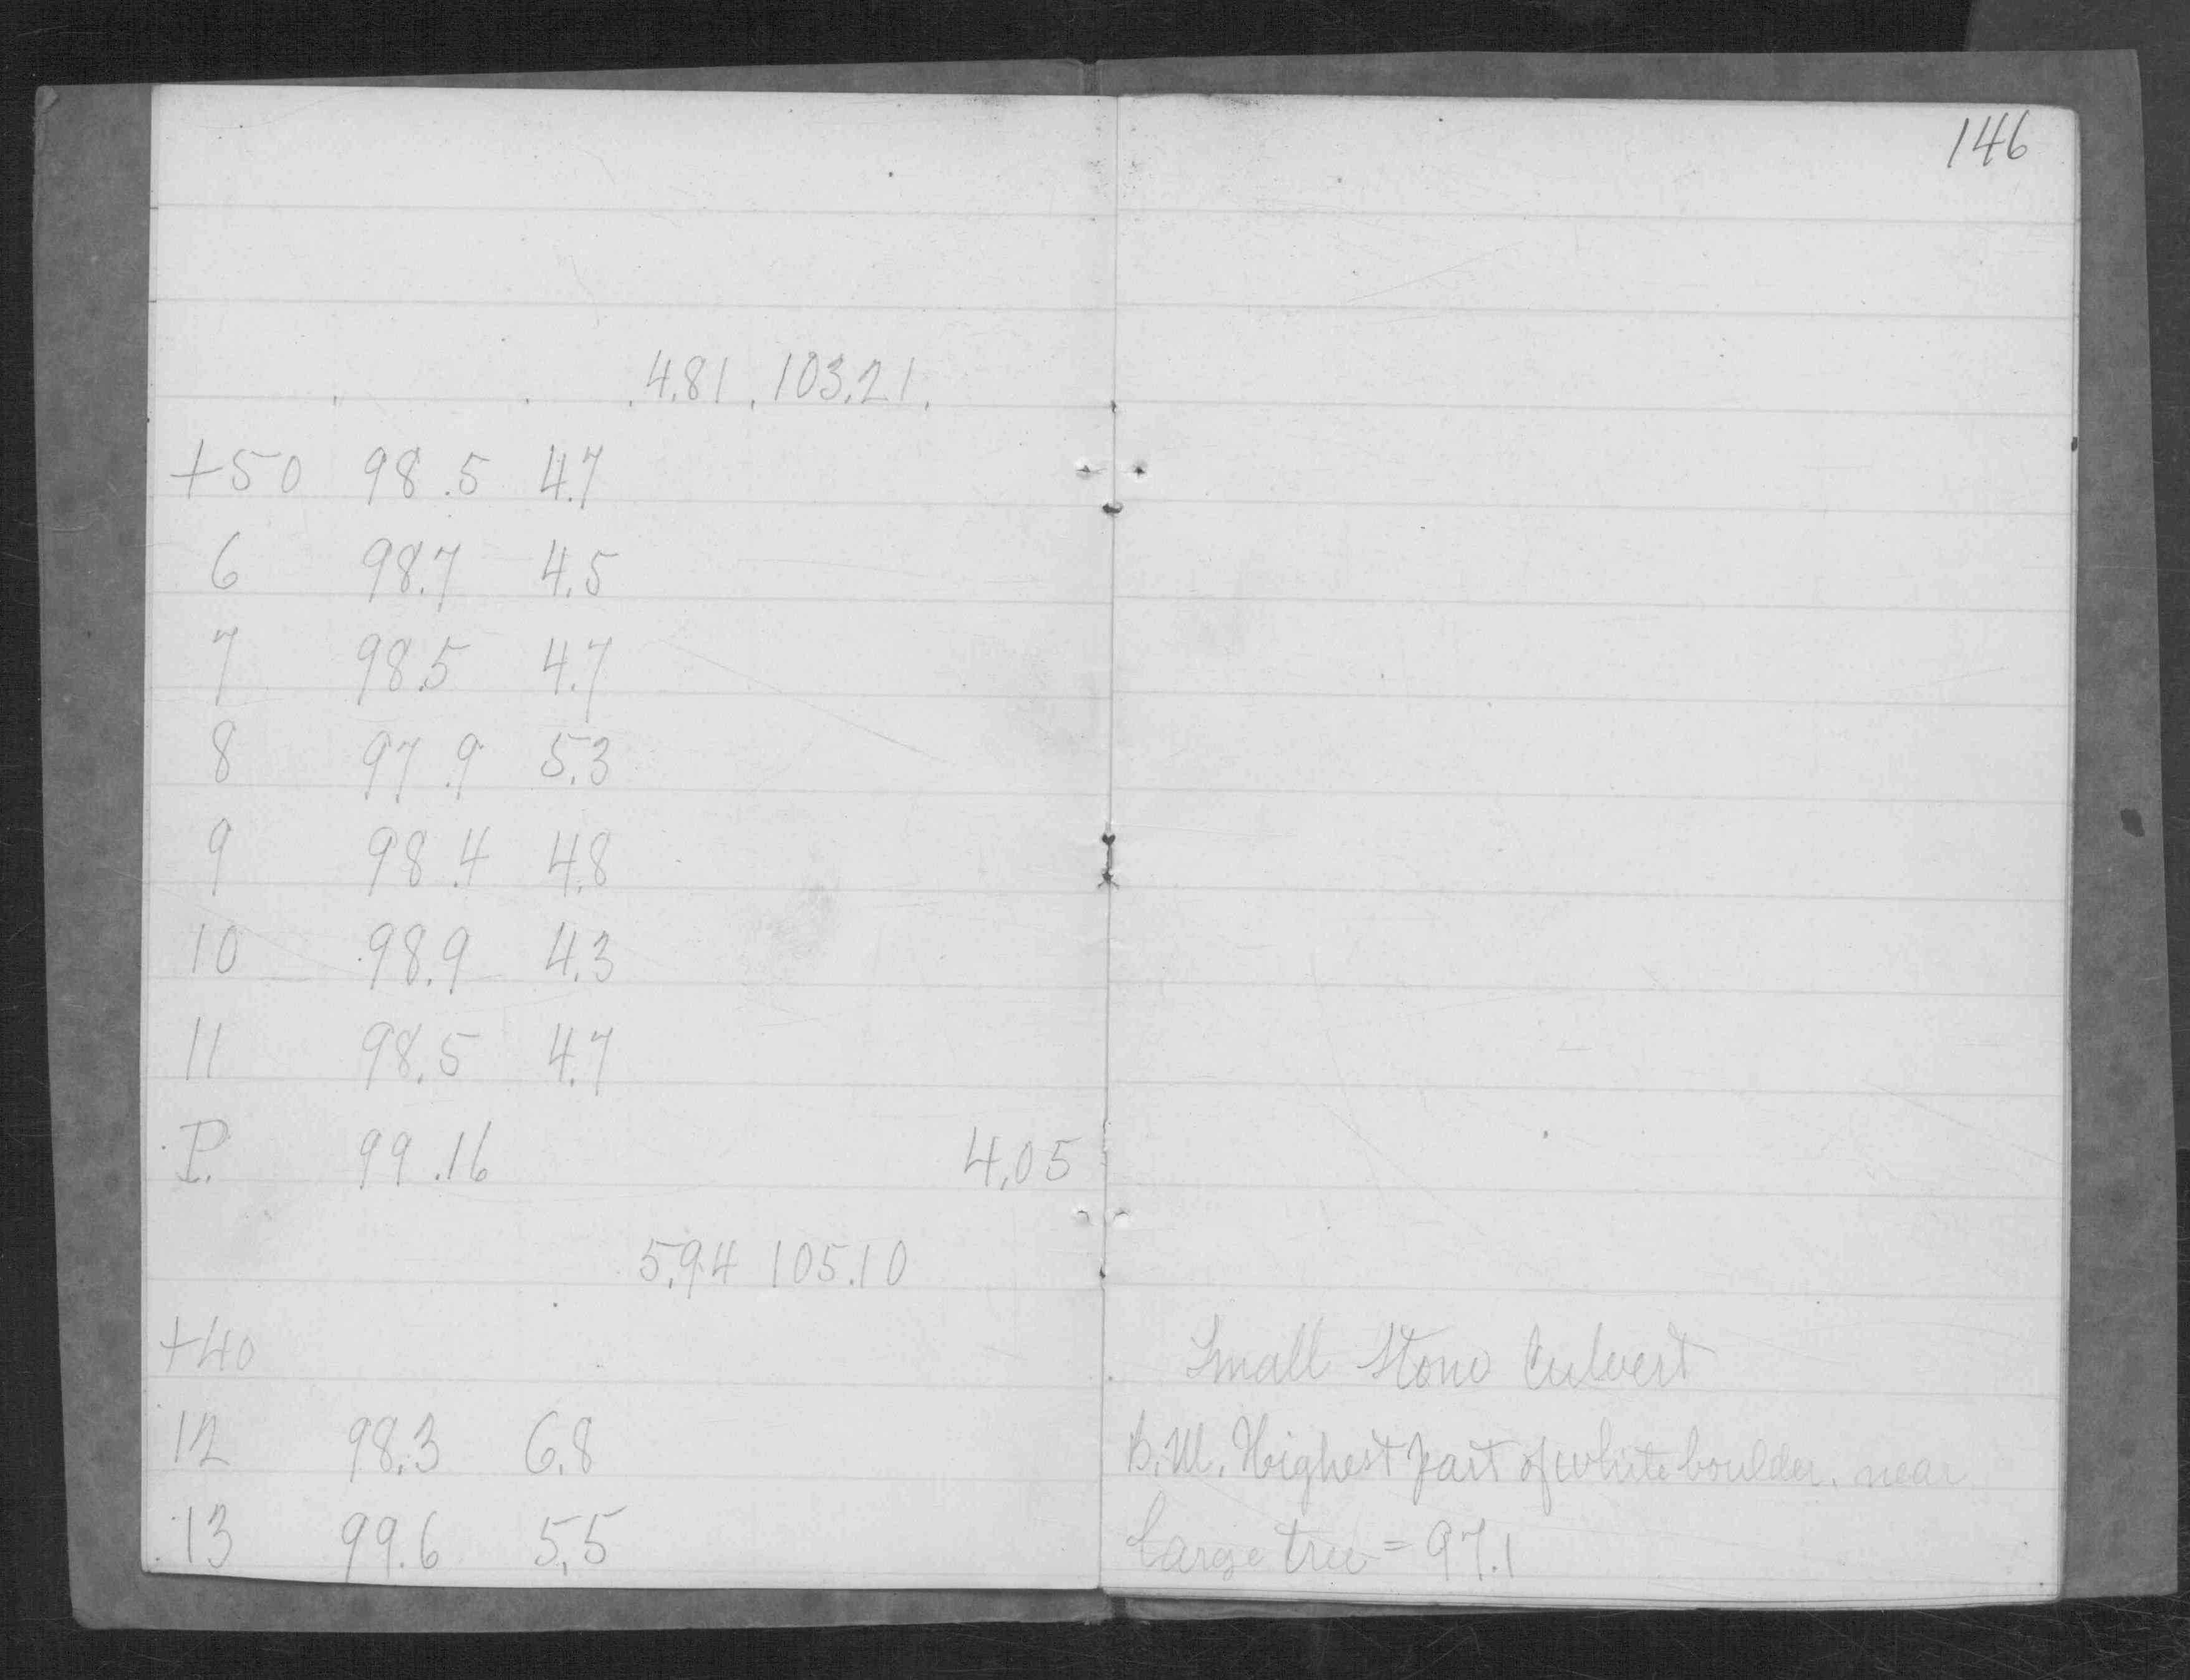 146
4.81 103.21
+50 98.5 4.7
6 98.7 4.5
7 98.5 4.7
8 97.9 5.3
9 98.4 4.8
10 98.9 4.3
11 98.5 4.7
P. 99.16 4.05
5.94 105.10
+40 Small Stone Culvert
12 98.3 6.8 B.M. Highest part of white boulder. near
13 99.6 5.5 large tree = 97.1